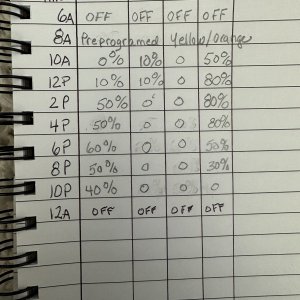 6A OFF OFF OFF OFF
8A Preprogramed Yellow/Orange
10A 0% 10% 0 50%
12P 10% 10% 0 80%
2P 50% 0 0 80%
4P 50% 0 0 80%
6P 60% 0 0 50%
8P 50% 0 0 30%
10P 40% 0 0 0
12A OFF OFF OFF OFF